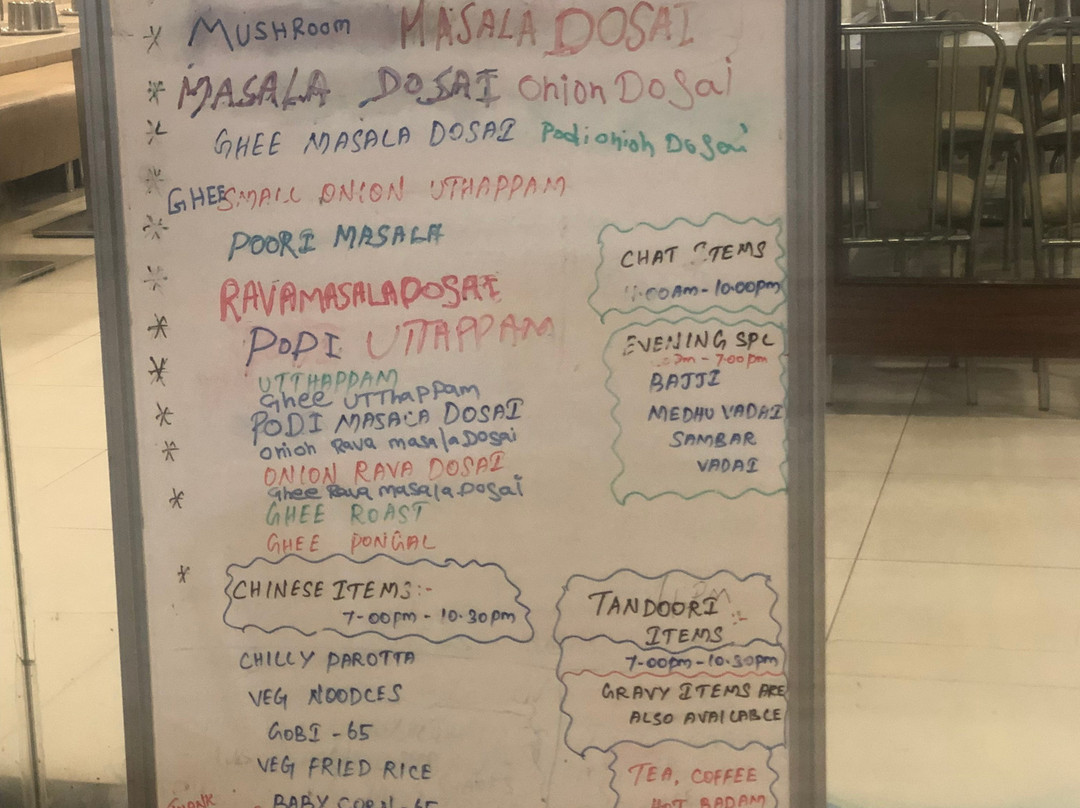 * MUSHROOM MASALA DOSAI
* MASALA DOSAI Onion Dosai
* GHEE MASALA DOSAI Podi onion Dosai
* GHEE SMALL ONION UTHAPPAM
* POORI MASALA
* RAVA MASALA DOSAI
* PODI UTTAPPAM
* UTTHAPPAM
Ghee UTThapPam
* PODI MASALA DOSAI
onion Rava masala Dosai
* ONION RAVA DOSAI
Ghee Rava masala Dosai
* GHEE ROAST
GHEE PONGAL
CHAT ITEMS
10:00pm
EVENING SPL
7:00pm
BAJJI
MEDHU VADAI
SAMBAR
VADAI
* CHINESE ITEMS:-
7-00pm - 10.30pm
CHILLY PAROTTA
VEG NOODLES
GOBI - 65
VEG FRIED RICE
BABY CORN - 65
TANDOORI :-
ITEMS
7-00pm - 10.30pm
GRAVY ITEMS ARE
ALSO AVAILABLE
TEA, COFFEE
HOT BADAM
THANK